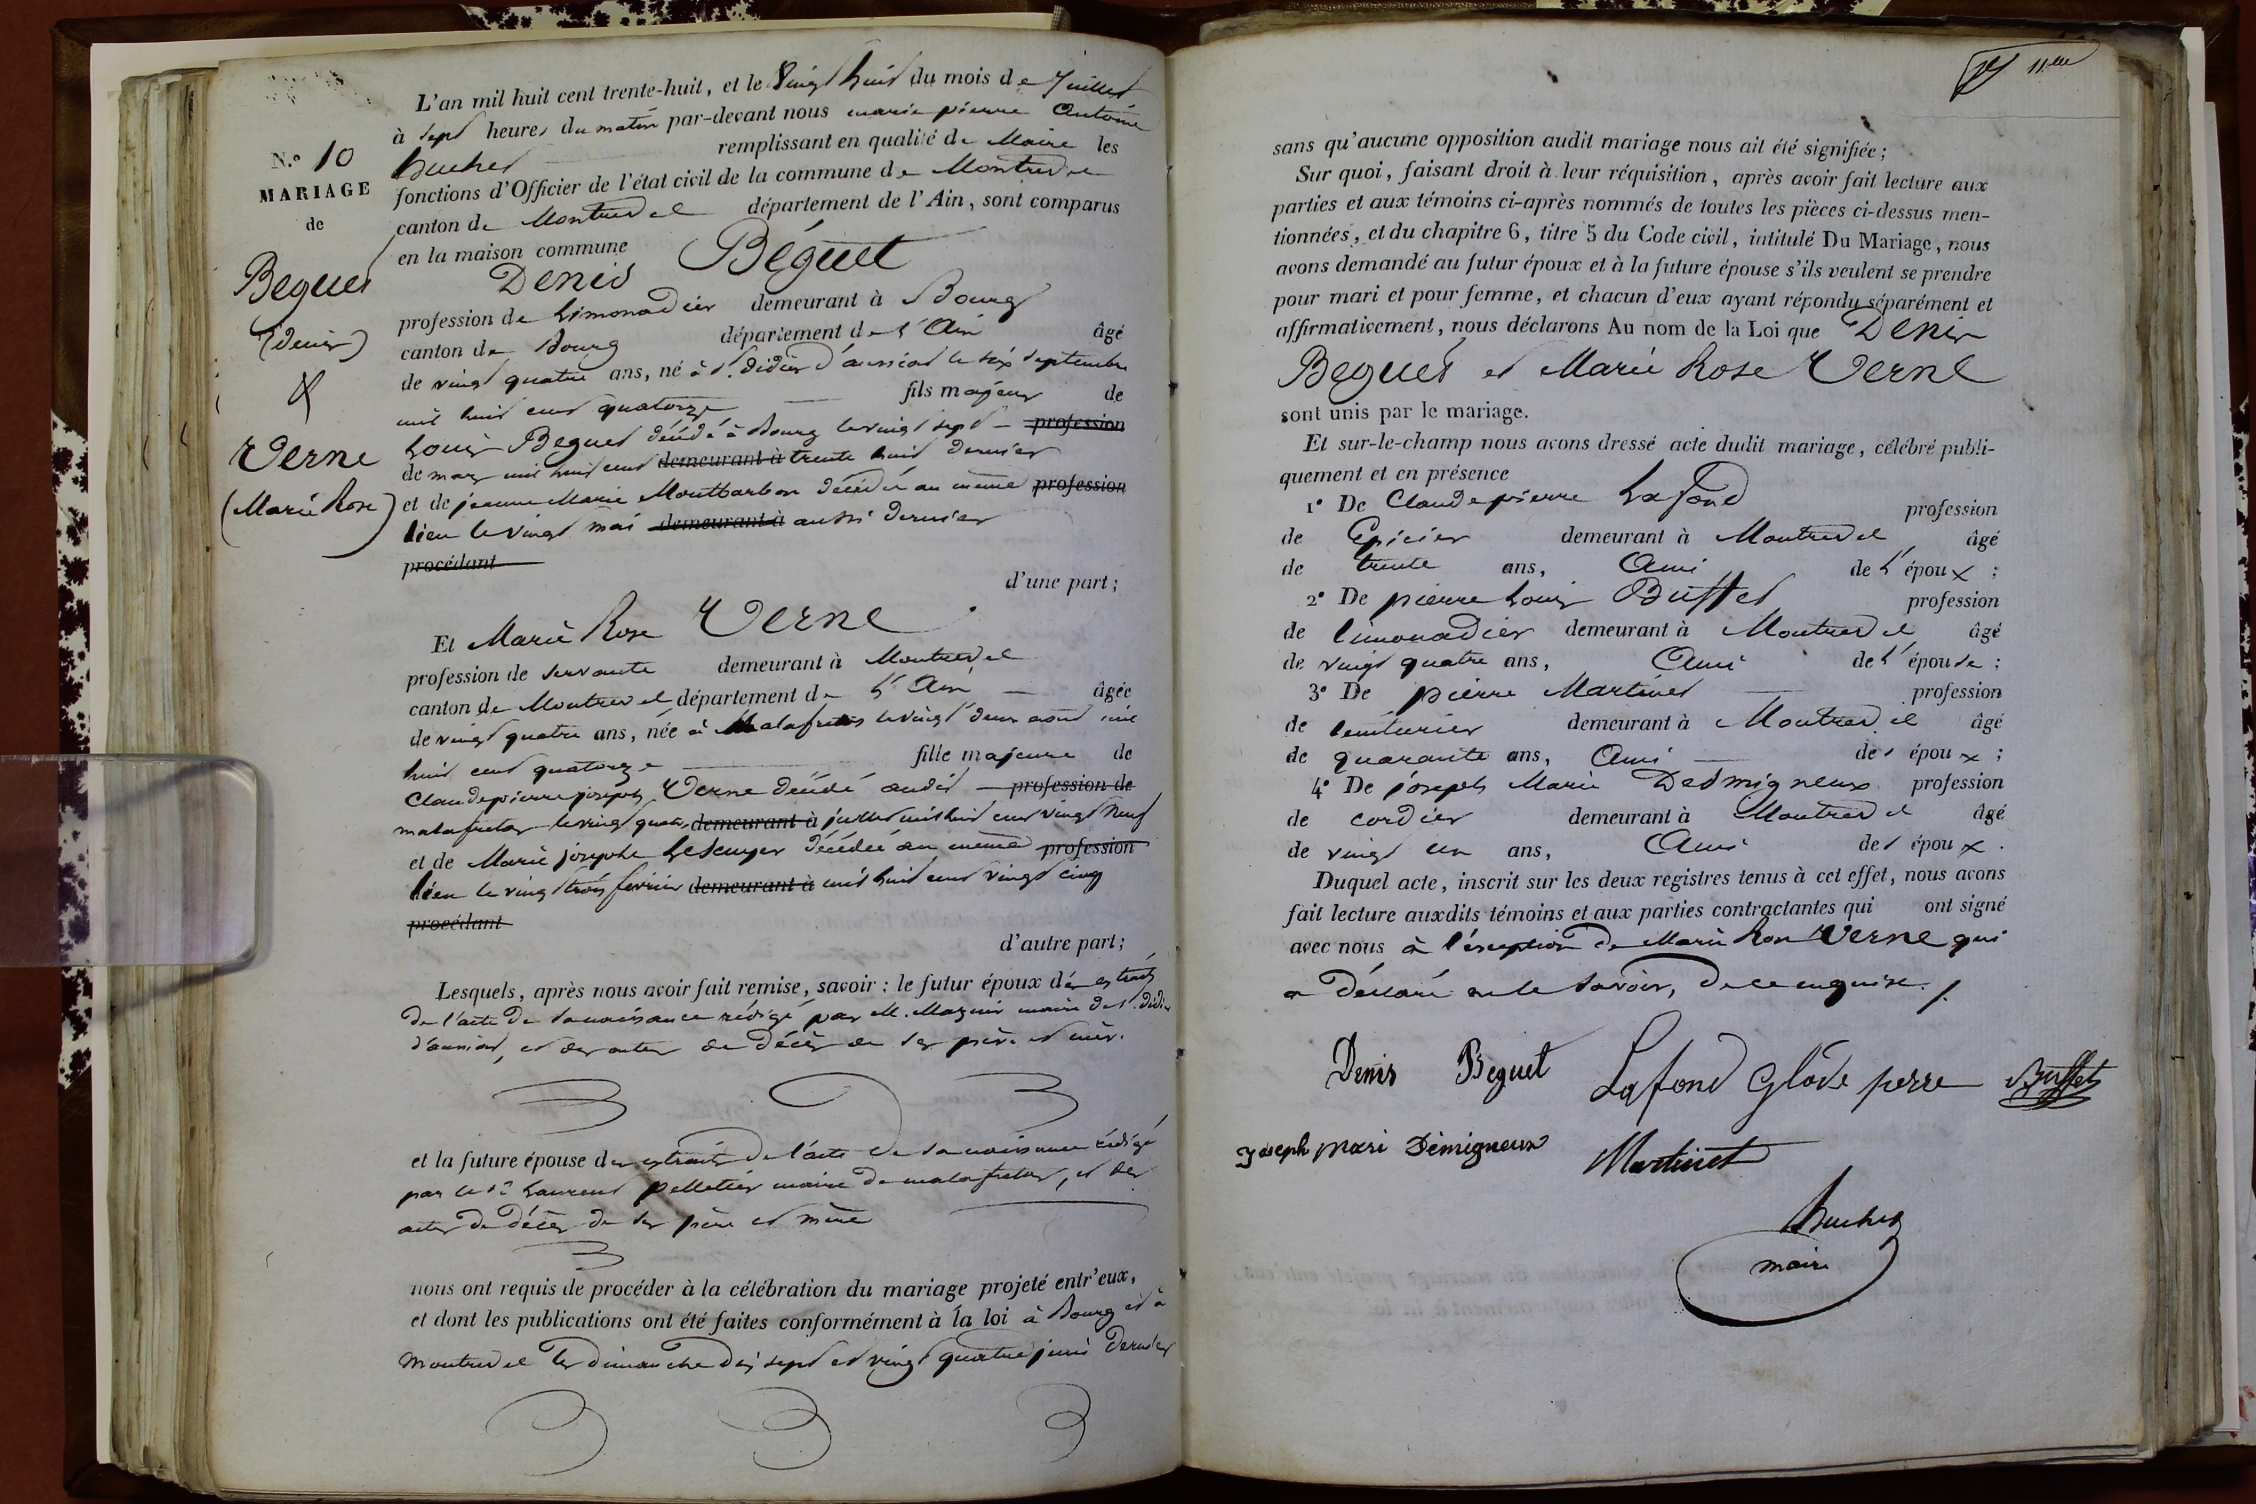 L'an mil huit cent trente-huit, et le Vingt huit du mois de Juillet
à sept heures du matin par-devant nous marie pierre Antoine
N.º 10
Buchet remplissant en qualité de Maire les
MARIAGE
fonctions d'Officier de l'état civil de la commune de Montrevel
de
canton de Montrevel département de l'Ain, sont comparus
en la maison commune
Beguet
(Denis)
&
Verne
(Marie Rose)
Denis Béguet
profession de Limonadier demeurant à Bourg
canton de Bourg département de l'Ain âgé
de vingt quatre ans, né à St. Didier d'aussiat le six septembre
mil huit cent quatorze fils majeur de
Louis Beguet décédé à Bourg le vingt sept profession
de mars mil huit cent demeurant à trente huit dernier
et de jeanne Marie Montbarbon décédée au même profession
lieu le vingt mai demeurant à aussi dernier
procédant
d'une part;
Et Marie Rose Verne
profession de servante demeurant à Montrevel
canton de Montrevel département de L'Ain âgée
de vingt quatre ans, née à Malafretas le vingt deux aout mil
huit cent quatorze fille majeure de
Claude pierre joseph Verne décédé audit profession de
malafretas le vingt quatre demeurant à juillet mil huit cent vingt neuf
et de Marie josephe décédée au même profession
lieu le vingt trois fevrier demeurant à mil huit cent vingt cinq
procédant
d'autre part;
Lesquels, après nous avoir fait remise, savoir: le futur époux des extraits
de l'acte de sa naissance rédigé par M. maire de St. Didier
d'aussiat, et des actes de décès de ses père et mère.
et la future épouse des extraits de l'acte de sa naissance rédigé
par le sr. Laurent pelletier maire de malafretas, et des
actes de décès de ses père et mère
nous ont requis de procéder à la célébration du mariage projeté entr'eux,
et dont les publications ont été faites conformément à la loi à Bourg et à
Montrevel les dimanche dix sept et vingt quatre juin dernier
11.me
sans qu'aucune opposition audit mariage nous ait été signifiée;
Sur quoi, faisant droit à leur réquisition, après avoir fait lecture aux
parties et aux témoins ci-après nommés de toutes les pièces ci-dessus men-
tionnées, et du chapitre 6, titre 5 du Code civil, intitulé Du Mariage, nous
avons demandé au futur époux et à la future épouse s'ils veulent se prendre
pour mari et pour femme, et chacun d'eux ayant répondu séparément et
affirmativement, nous déclarons Au nom de la Loi que Denis
Beguet et Marie Rose Verne
sont unis par le mariage.
Et sur-le-champ nous avons dressé acte dudit mariage, célébré publi-
quement et en présence
1º De Claude pierre Lafond profession
de Epicier demeurant à Montrevel âgé
de trente ans, Ami de l'époux;
2º De pierre Louis Buffet profession
de limonadier demeurant à Montrevel âgé
de vingt quatre ans, Ami de l'épouse;
3º De pierre Martinet profession
de teinturier demeurant à Montrevel âgé
de quarante ans, Ami des époux;
4º De joseph Marie Desmigneux profession
de cordier demeurant à Montrevel âgé
de vingt un ans, Ami des époux.
Duquel acte, inscrit sur les deux registres tenus à cet effet, nous avons
fait lecture auxdits témoins et aux parties contractantes qui ont signé
avec nous à l'éxeption de Marie Rose Verne qui
a déclaré ne le savoir, de ce enquise./.
Denis Beguet Lafond Glode perre Buffet
Joseph mari Démigneux Martinet
Buchet
maire